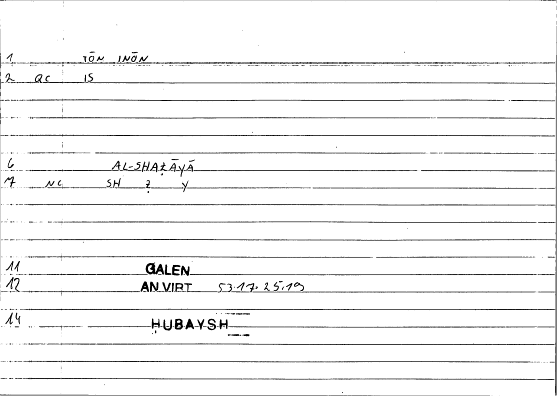 1 IŌN INŌN
2 QC IS
6 AL-SHAẒĀYĀ
7 NC SH Ẓ Y
11 GALEN
12 AN VIRT 53.17.25.19
14 ḤUBAYSH